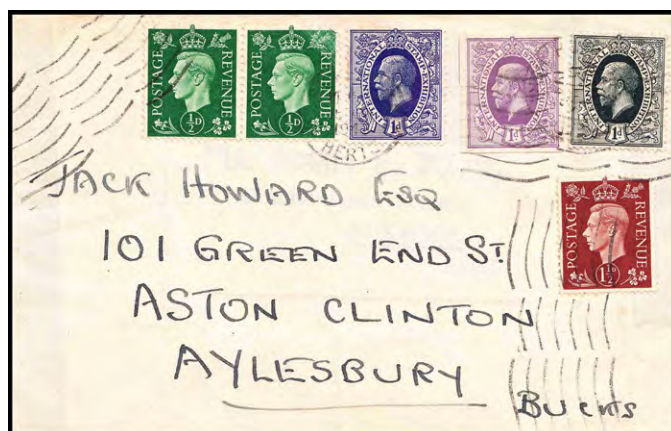 POSTAGE REVENUE ½D
POSTAGE REVENUE ½D
INTERNATIONAL STAMP EXHIBITION 1d
INTERNATIONAL STAMP EXHIBITION 1d
INTERNATIONAL STAMP EXHIBITION 1d
HERTS
POSTAGE REVENUE 1½D
JACK HOWARD ESQ
101 GREEN END ST.
ASTON CLINTON
AYLESBURY
BUCKS